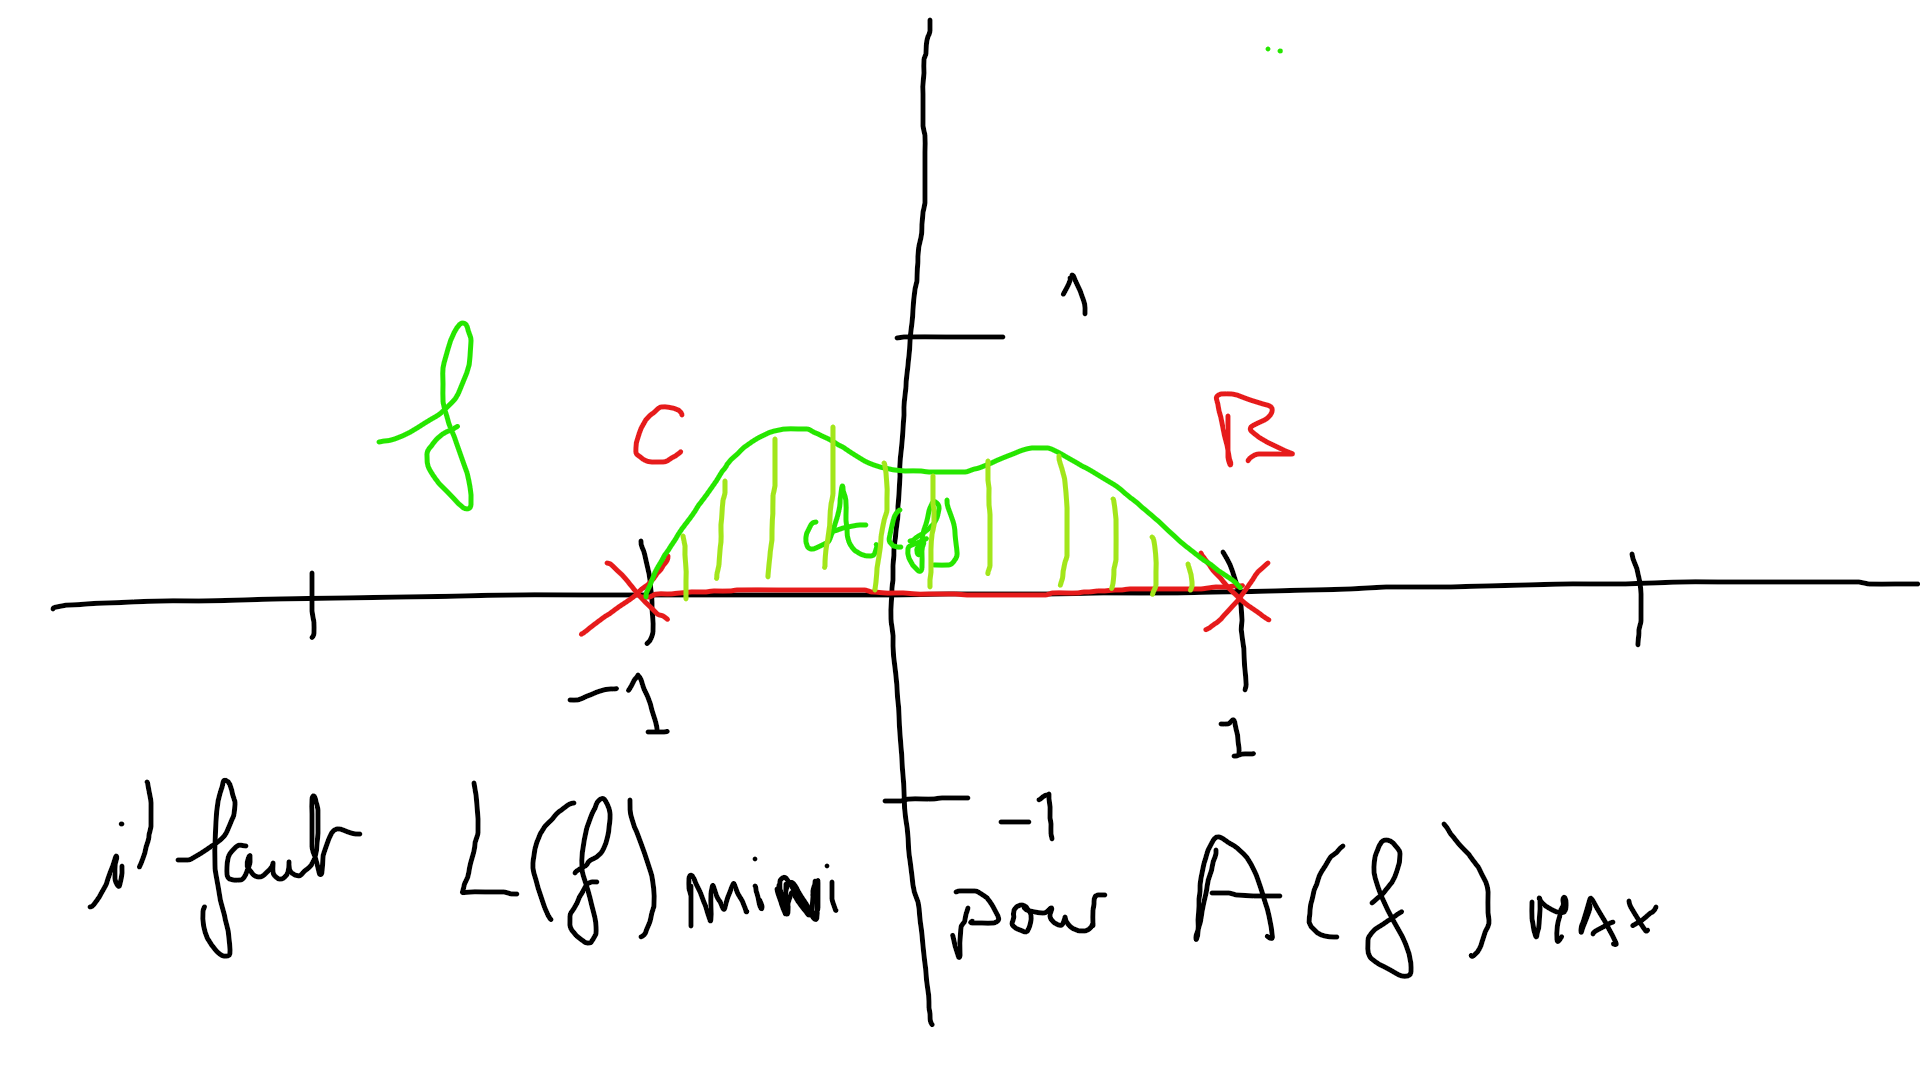 1
f
C
B
A(f)
-1
1
-1
il faut L(f) mini pour A(f) max